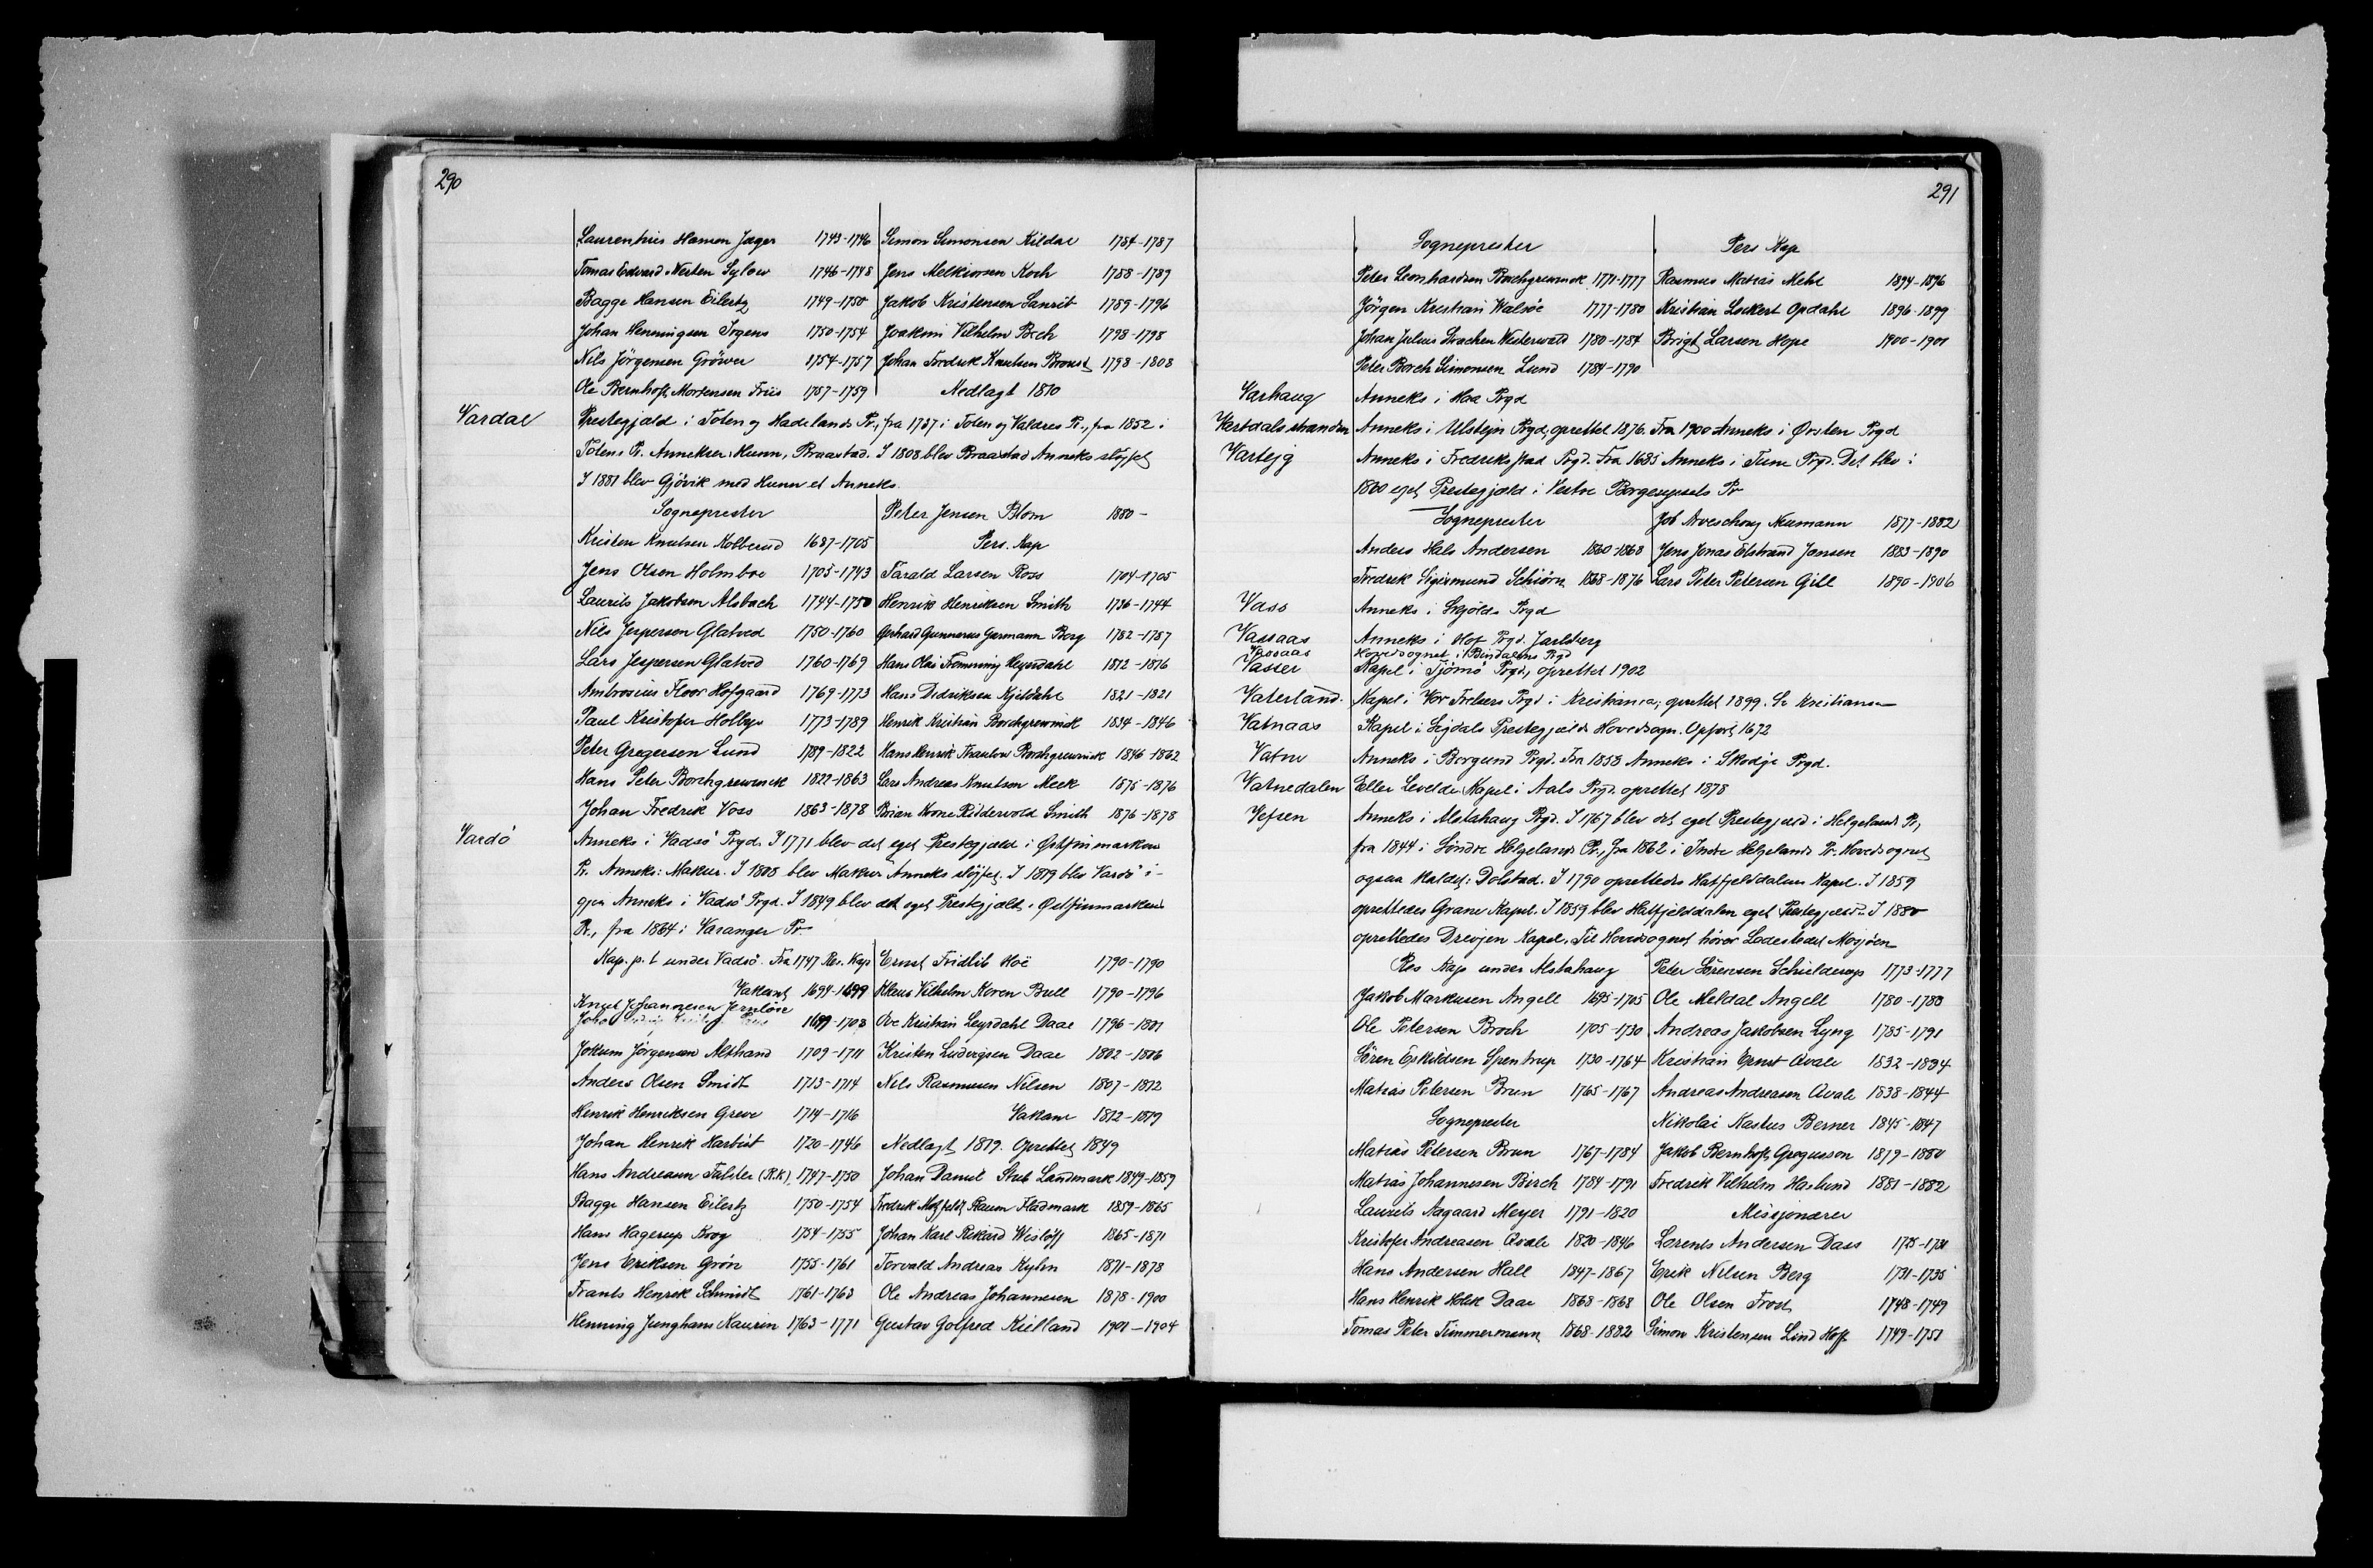 290
Laurentius Hansen Jæger 1743-1746 Simon Simonsen Kildal 1784-1787
Tomas Edvard Nerten Sylow 1746-1748 Jens Melkiorsen Koch 1788-1789
Bagge Hansen Eilertz 1749-1750 Jakob Kristensen Lanrit 1789-1796
Johan Henningsen Irgens 1750-1754 Joakim Vilhelm Bech 1798-1798
Nils Jörgensen Gröwer 1754-1757 Johan Fredrik Knutsen Bronst 1798-1808
Ole Bernhoft Mortensen Friis 1757-1759 Nedlagt 1810
Vardal Prestegjæld i Toten og Hadelands Pr., fra 1757 i Toten og Valdres Pr., fra 1852 i
Totens Pr. Annekser: Hunn, Braastad. I 1808 blev Braastad Anneks sløjfet
I 1881 blev Gjövik med Hunn et Anneks.
Sogneprester Peter Jensen Blom 1880-
Kristen Knutsen Kolberud 1687-1705 Pers. Kap
Jens Olsen Holmboe 1705-1743 Tarald Larsen Ross 1704-1705
Laurits Jakobsen Alsbach 1744-1750 Henrik Henriksen Smith 1736-1744
Nils Jespersen Glatved 1750-1760 Gerhard Gunnerus Garmann Berg 1782-1787
Lars Jespersen Glatved 1760-1769 Hans Olai Fremming Heyerdahl 1812-1816
Ambrosius Floor Hofgaard 1769-1773 Hans Didriksen Kjeldahl 1821-1821
Paul Kristofer Holbye 1773-1789 Henrik Kristian Borchgrewinck 1834-1846
Peter Gregersen Lund 1789-1822 Hans Henrik Thaulow Borchgrewinck 1846-1862
Hans Peter Borchgrewinck 1822-1863 Lars Andreas Knutson Meek 1875-1876
Johan Fredrik Voss 1863-1878 Brian Krone Ridderwold Smith 1876-1878
Vardö Anneks i Vadsö Prgd. I 1771 blev det eget Prestegjæld i Østfinmarkens
Pr. Anneks: Makur. I 1808 blev Makur Anneks sløjfet. I 1819 blev Vardö i-
gjen Anneks i Vadsö Prgd. I 1849 blev det eget Prestegjæld i Østfinmarkens
Pr., fra 1864 i Varanger Pr.
Kap. p. t. under Vadsö. Fra 1747 Res. Kap Ernst Fridlib Hoë 1790-1790
Vakant 1694-1699 Klaus Vilhelm Koren Bull 1790-1796
Knut Johannesen Jernløse
1699-1708 Ove Kristian Leyrdahl Daae 1796-1801
Jokum Jörgensen Althand 1709-1711 Kristen Ludvigsen Daae 1802-1806
Anders Olsen Smidt 1713-1714 Nels Rasmusen Nilsen 1807-1812
Henrik Henriksen Greve 1714-1716 Vakant 1812-1819
Johan Henrik Harbist 1720-1746 Nedlagt 1819. Oprettet 1849
Hans Andreasen Falster (R.K.) 1747-1750 Johan Daniel Stub Landmark 1849-1859
Bagge Hansen Eilertz 1750-1754 Fredrik Motzfeldt Raum Fladmark 1859-1865
Hans Hagerup Krog 1754-1755 Johan Karl Rikard Wislöff 1865-1871
Jens Eriksen Grön 1755-1761 Torvald Andreas Kylin 1871-1878
Frants Henrik Schmidt 1761-1763 Ole Andreas Johannesen 1878-1900
Henning Junghans Kaurin 1763-1771 Gustav Golfred Kielland 1901-1904
291
Sogneprester Pers Kap
Peter Leonhardsen Borchgrewinck 1771-1777 Rasmus Matias Mehl 1894-1896
Jörgen Kristian Walsöe 1777-1780 Kristian Lockert Opdahl 1896-1899
Johan Julius Drachen Westerwald 1780-1784 Brigt Larsen Hope 1900-1901
Peter Borch Simonsen Lund 1784-1790
Varhaug Anneks i Haa Prgd
Vartdalsstranden Anneks i Ulstejn Prgd, oprettet 1876. Fra 1900 Anneks i Ørsten Prgd
Vartejg Anneks i Fredriksstad Prgd. Fra 1685 Anneks i Tune Prgd. Det blev i
1860 eget Prestegjæld i Vestre Borgesyssels Pr
Sogneprester Job Aveschoug Neumann 1877-1882
Anders Hals Andersen 1860-1868 Jens Jonas Elstrand Jansen 1883-1890
Fredrik Sigismund Schiörn 1868-1876 Lars Peter Petersen Gill 1890-1906
Vass Anneks i Skjölds Prgd
Vassaas Anneks i Hof Prgd. Jarlsberg
Vassaas Hovedsognet i Bindalens Prgd
Vasser Kapel i Tjømö Prgd, oprettet 1902
Vaterland. Kapel i Vor Frelsers Prgd i Kristiania; oprettet 1899. Se Kristiania
Vatnaas Kapel i Sigdals Prestegjælds Hovedsogn. Opført 1672
Vatne Anneks i Borgund Prgd. Fra 1858 Anneks i Skodje Prgd.
Vatnedalen Eller Levelde. Kapel i Aals Prgd. oprettet 1878
Vefsen Anneks i Alstahaug Prgd. I 1767 blev det eget Prestegjæld i Helgelands Pr,
fra 1844 i Söndre Helgelands Pr., fra 1862 i Indre Helgelands Pr. Hovedsognet
ogsaa kaldet: Dolstad. I 1790 oprettedes Hatfjelddalens Kapel. I 1859
oprettedes Grane Kapel. I 1859 blev Hatfjelddalen eget Prestegjæld. I 1880
oprettedes Drevjen Kapel. Til Hovedsognet hörer Ladestedet Mosjöen
Res Kap under Alstahaug Peter Sörensen Schielderup 1773-1777
Jakob Markusen Angell 1695-1705 Ole Meldal Angell 1780-1783
Ole Petersen Broch 1705-1730 Andreas Jakobsen Lyng 1785-1791
Sören Eskildsen Spentrup 1730-1764 Kristian Ernst Qvale 1832-1834
Matias Petersen Brun 1765-1767 Andreas Andreasen Qvale 1838-1844
Sogneprester Nikolai Kastus Berner 1845-1847
Matias Petersen Brun 1767-1784 Jakob Bernhoft Gregusson 1879-1880
Matias Johannesen Birch 1784-1791 Fredrik Vilhelm Haslund 1881-1882
Laurits Aagaard Meyer 1791-1820 Missjonærer
Kristofer Andreasen Qvale 1820-1846 Lorents Andersen Dass 1725-1731
Hans Andersen Hall 1847-1867 Erik Nilsen Berg 1731-1735
Hans Henrik Holck Daae 1868-1868 Ole Olsen Frost 1748-1749
Tomas Peter Timmermann 1868-1882 Simon Kristensen Lind Hoff 1749-1751